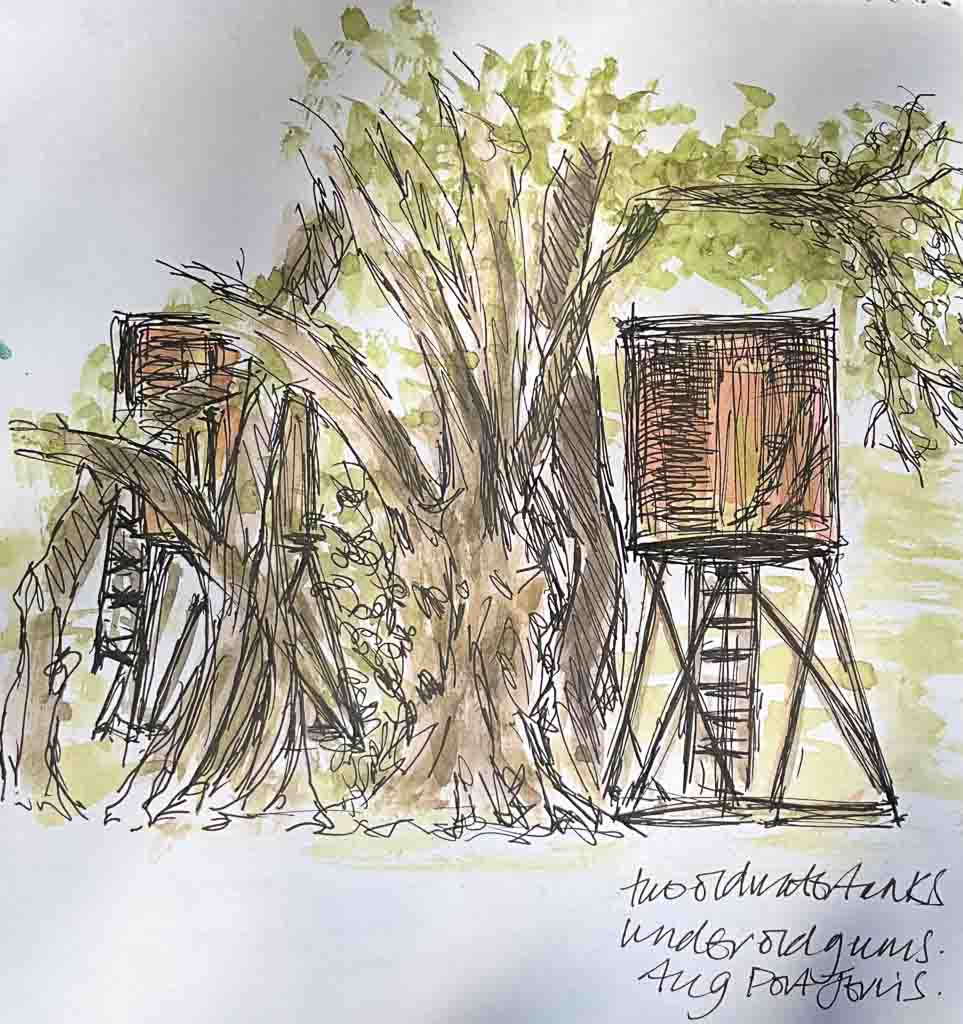 two old water tanks
under old gums.
Aug Port